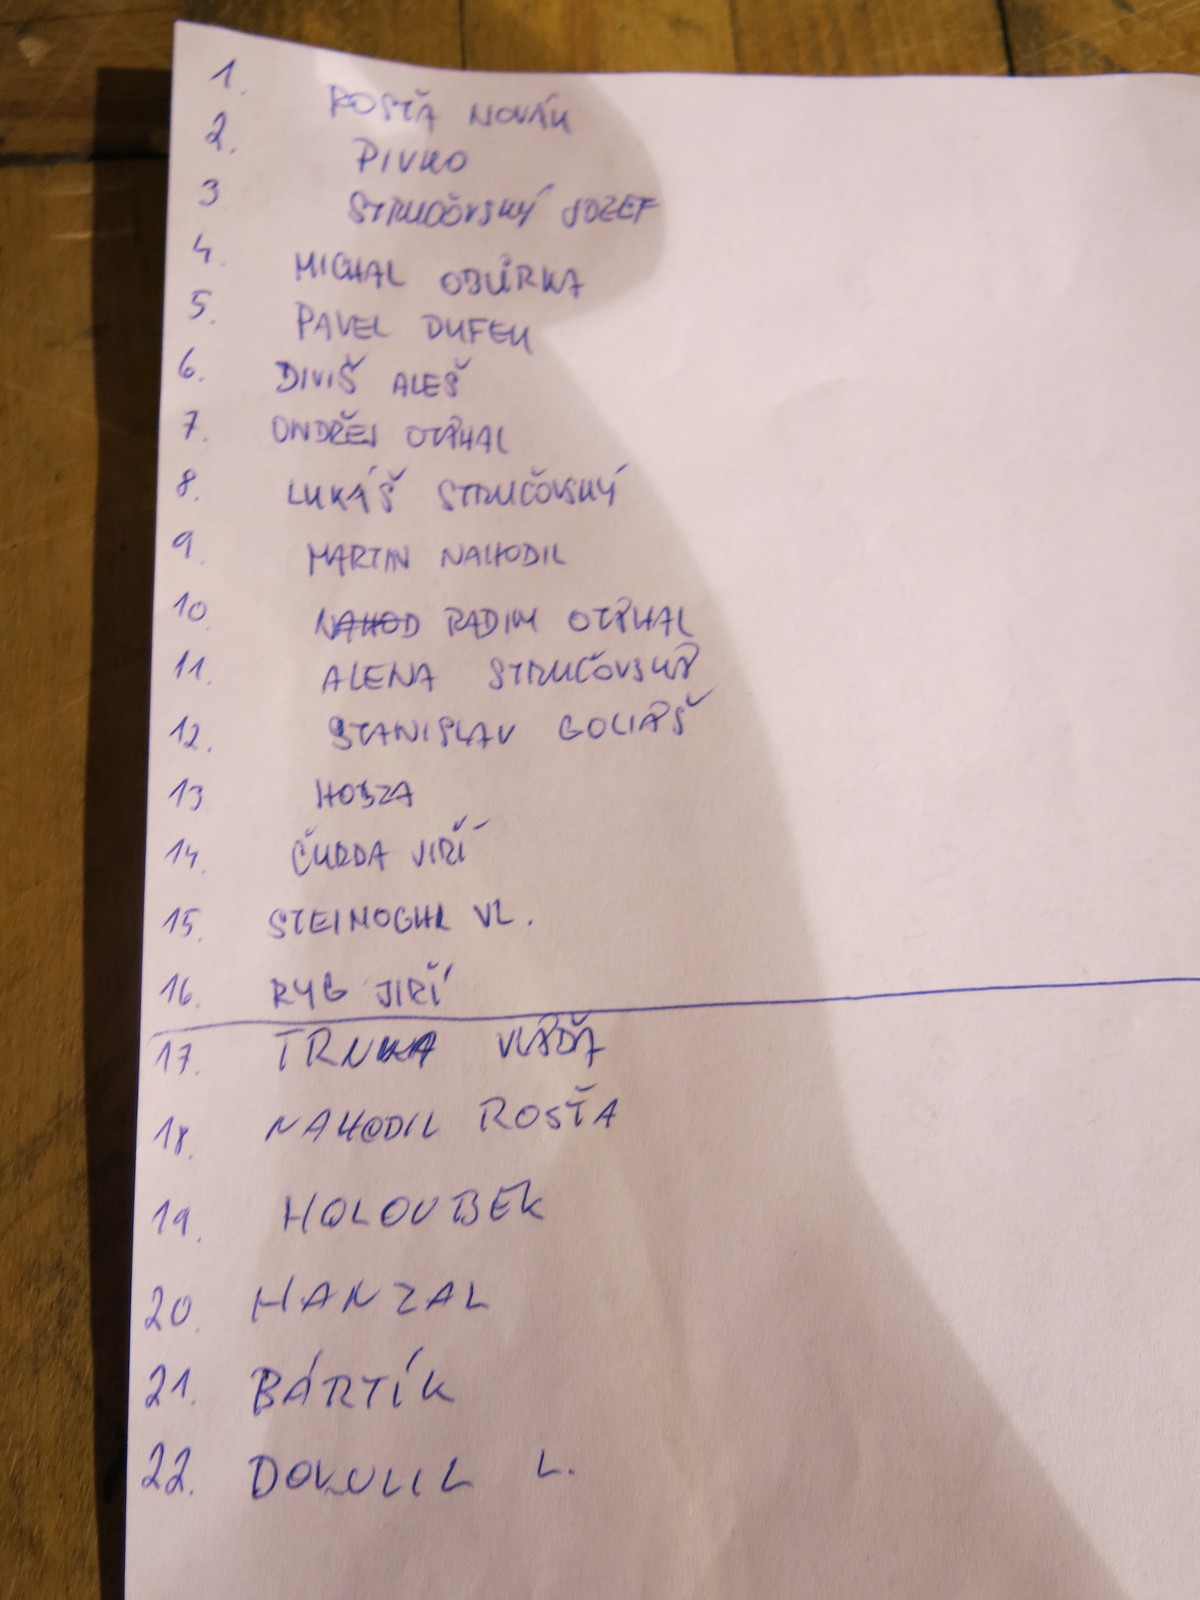 1. ROSŤA NOVÁK
2. PIVKO
3 STRUČOVSKÝ JOZEF
4. MICHAL OBŮRKA
5. PAVEL DUFEK
6. DIVIŠ ALEŠ
7. ONDŘEJ OTÁHAL
8. LUKÁŠ STRUČOVSKÝ
9. MARTIN NAHODIL
10. NAHOD RADIM OTÁHAL
11. ALENA STRUČOVSKÁ
12. STANISLAV GOLIÁŠ
13 HOBZA
14. ČURDA JIŘÍ
15. STEINOCHR VL.
16. RYG JIŘÍ
17. TRNKA VLÁĎA
18. NAHODIL ROSŤA
19. HOLOUBEK
20. HANZAL
21. BÁRTÍK
22. DOKULIL L.